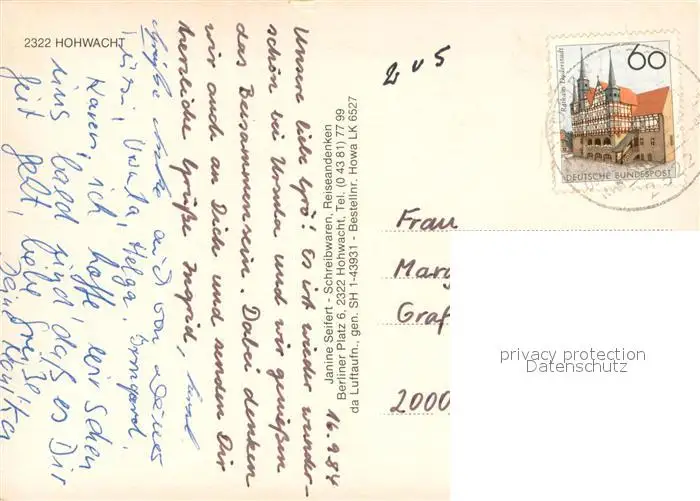 2322 HOHWACHT
16.9.84
Unsere liebe Grö! Es ist wieder wunder-
schön bei Ursula und wir genießen
das Beisammensein. Dabei denken
wir auch an Dich und senden Dir
herzliche Grüße Ingrid,
Grüße auch von
Ursula, Helga, Irmgard.
Karen, ich hoffe wir sehen
uns bald und, daß es Dir
gut geht, liebe Grüße
Deine Monika
Janine Seifert - Schreibwaren, Reiseandenken
Berliner Platz 6, 2322 Hohwacht, Tel. (0 43 81) 77 99
da Luftaufn., gen. SH 1-43931 - Bestellnr. Howa LK 6527
2 v 5
60
Rathaus Duderstadt
DEUTSCHE BUNDESPOST
Frau
Mary
Graf
2000
privacy protection
Datenschutz